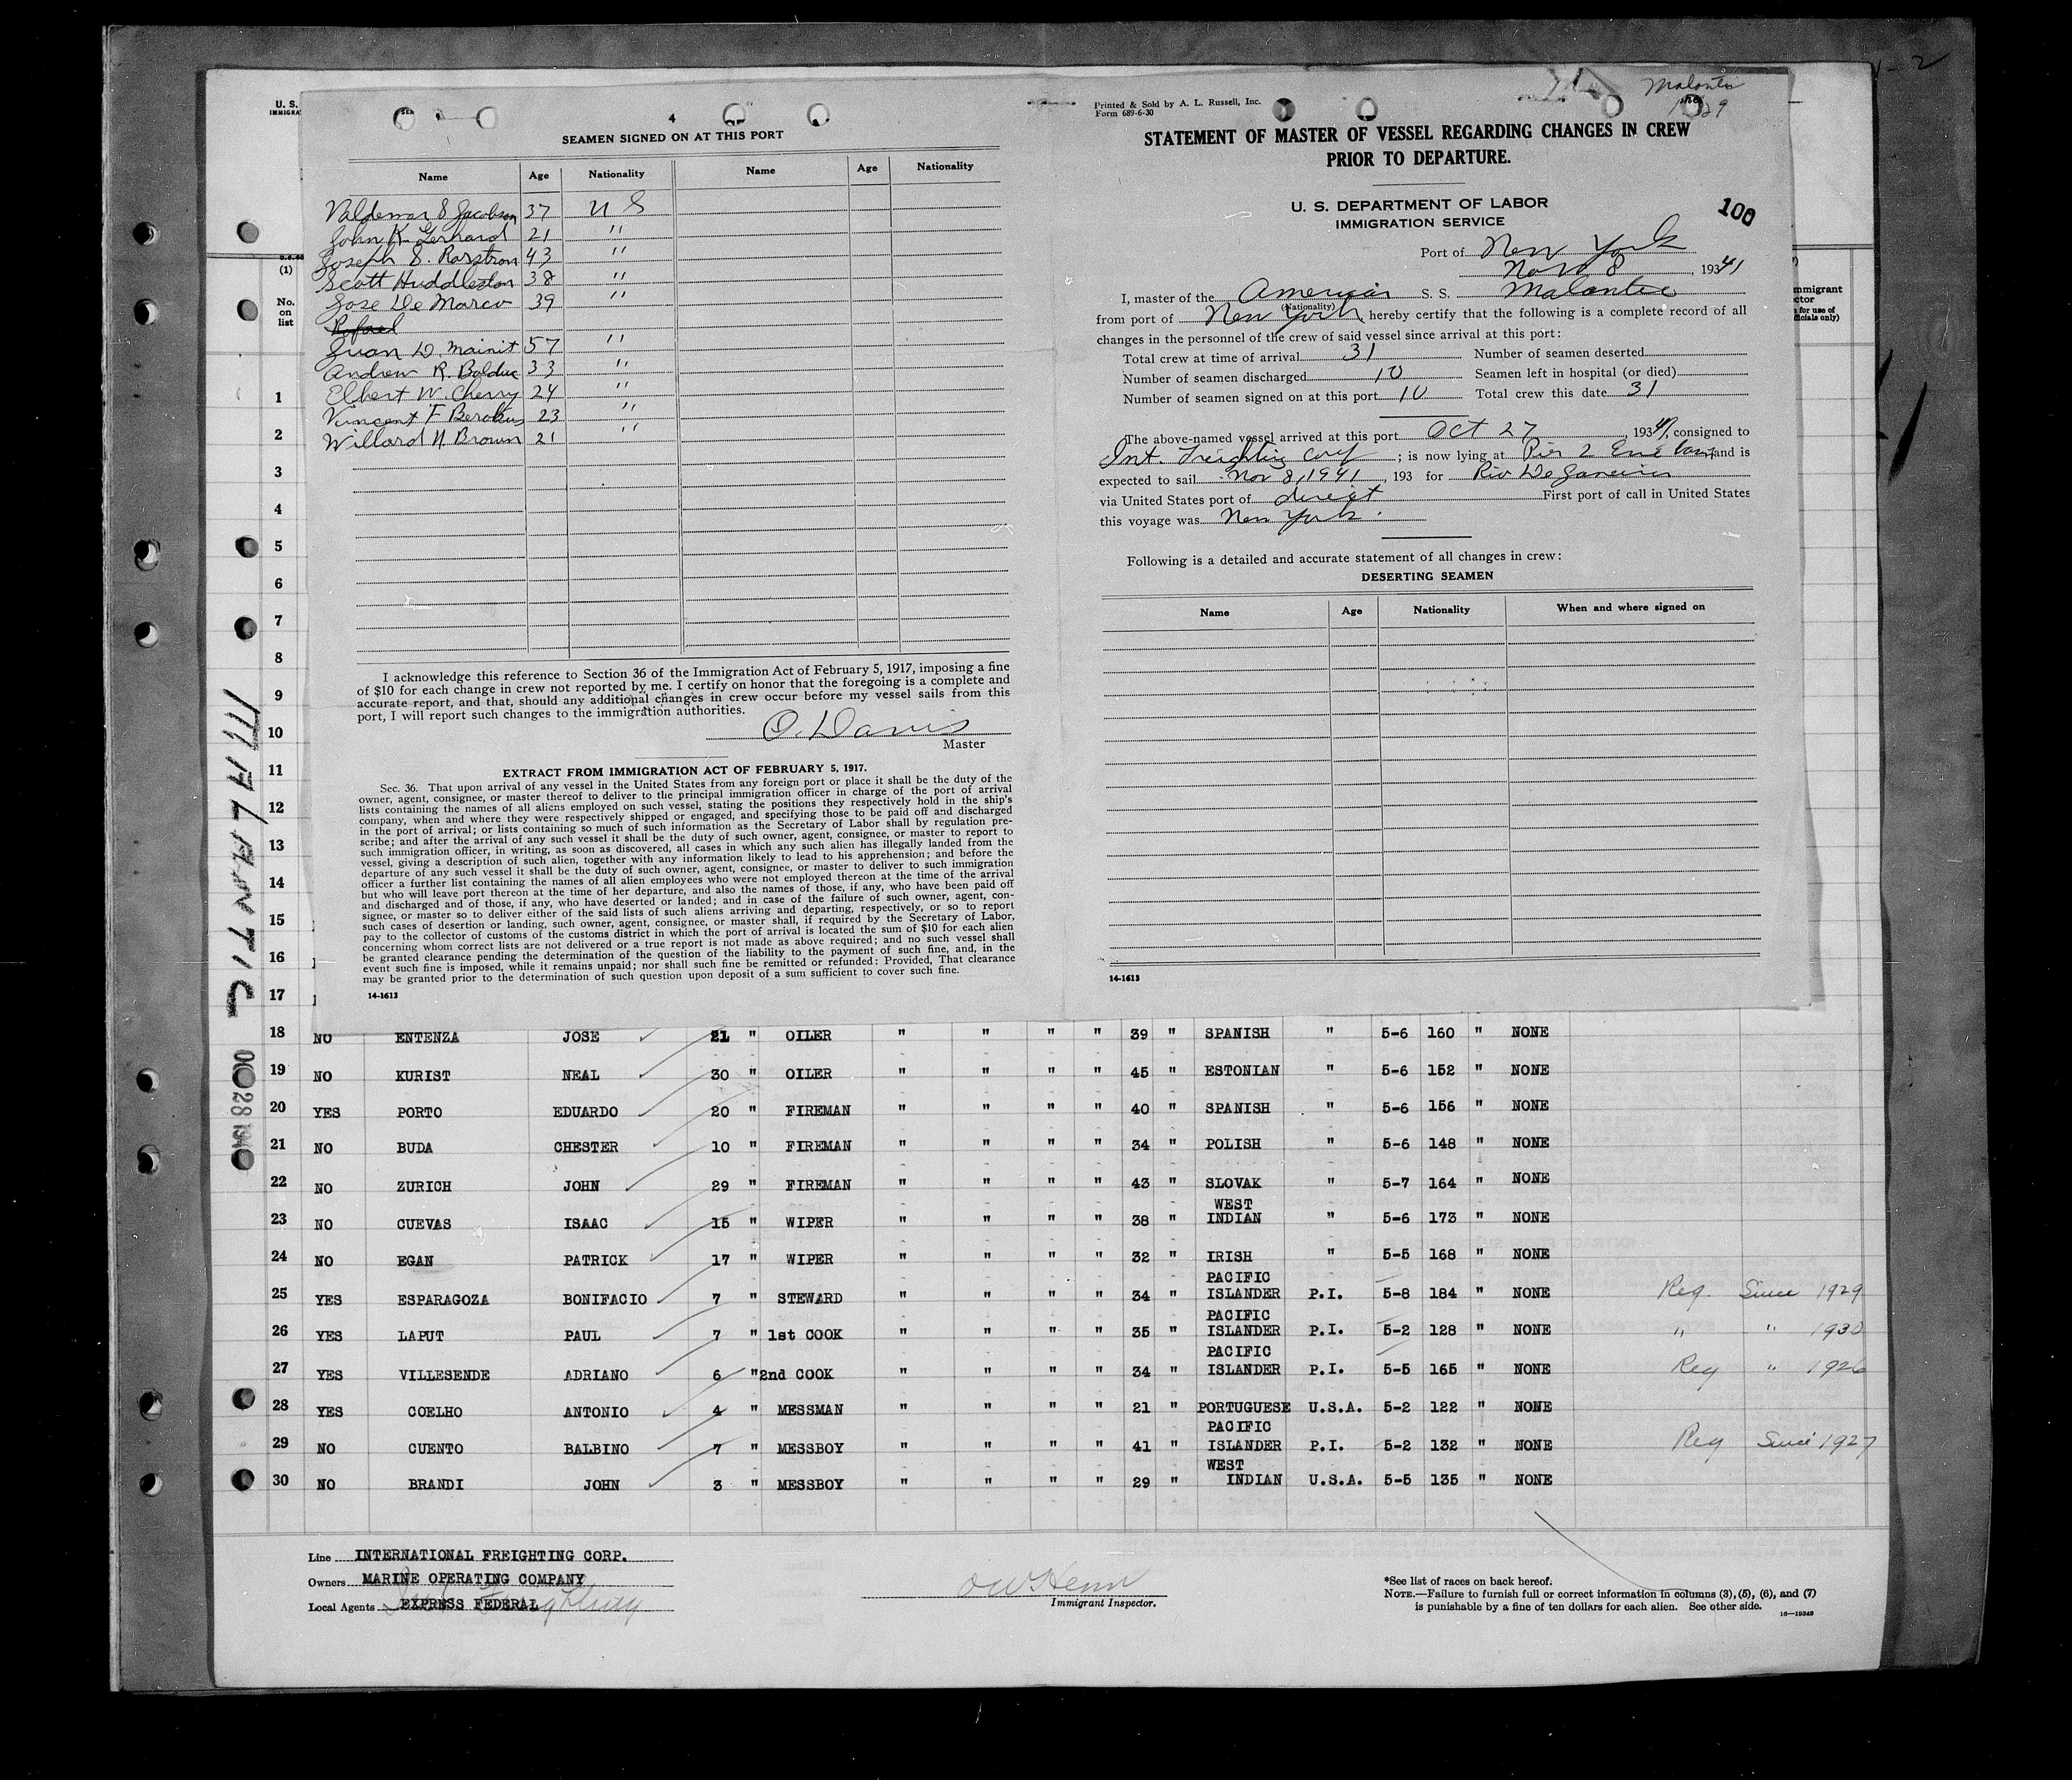 U. S.
IMMIGRA
4
SEAMEN SIGNED ON AT THIS PORT
Name Age Nationality Name Age Nationality
Valdemar S Jacobson 37 U S
John K. Gerhard 21 "
Joseph S. Rarstron 43 "
Scott Huddleston 38 "
Jose De Marco 39 "
Rafael
Juan D. Mainit 57 "
Andrew R. Bolduc 33 "
Elbert W. Cherry 24 "
Vincent F 23 "
Willard H Brown 21 "
I acknowledge this reference to Section 36 of the Immigration Act of February 5, 1917, imposing a fine
of $10 for each change in crew not reported by me. I certify on honor that the foregoing is a complete and
accurate report, and that, should any additional changes in crew occur before my vessel sails from this
port, I will report such changes to the immigration authorities.
O. Davis
Master
EXTRACT FROM IMMIGRATION ACT OF FEBRUARY 5, 1917.
Sec. 36. That upon arrival of any vessel in the United States from any foreign port or place it shall be the duty of the
owner, agent, consignee, or master thereof to deliver to the principal immigration officer in charge of the port of arrival
lists containing the names of all aliens employed on such vessel, stating the positions they respectively hold in the ship's
company, when and where they were respectively shipped or engaged, and specifying those to be paid off and discharged
in the port of arrival; or lists containing so much of such information as the Secretary of Labor shall by regulation pre-
scribe; and after the arrival of any such vessel it shall be the duty of such owner, agent, consignee, or master to report to
such immigration officer, in writing, as soon as discovered, all cases in which any such alien has illegally landed from the
vessel, giving a description of such alien, together with any information likely to lead to his apprehension; and before the
departure of any such vessel it shall be the duty of such owner, agent, consignee, or master to deliver to such immigration
officer a further list containing the names of all alien employees who were not employed thereon at the time of the arrival
but who will leave port thereon at the time of her departure, and also the names of those, if any, who have been paid off
and discharged and of those, if any, who have deserted or landed; and in case of the failure of such owner, agent, con-
signee, or master so to deliver either of the said lists of such aliens arriving and departing, respectively, or so to report
such cases of desertion or landing, such owner, agent, consignee, or master shall, if required by the Secretary of Labor,
pay to the collector of customs of the customs district in which the port of arrival is located the sum of $10 for each alien
concerning whom correct lists are not delivered or a true report is not made as above required; and no such vessel shall
be granted clearance pending the determination of the question of the liability to the payment of such fine, and, in the
event such fine is imposed, while it remains unpaid; nor shall such fine be remitted or refunded: Provided, That clearance
may be granted prior to the determination of such question upon deposit of a sum sufficient to cover such fine.
14-1613
Printed & Sold by A. L. Russell, Inc.
Form 689-6-30
Malantic
STATEMENT OF MASTER OF VESSEL REGARDING CHANGES IN CREW
PRIOR TO DEPARTURE.
U. S. DEPARTMENT OF LABOR
IMMIGRATION SERVICE
100
Port of New York
Nov 8, 1941
I, master of the American S. S. Malantic
(Nationality)
from port of New York hereby certify that the following is a complete record of all
changes in the personnel of the crew of said vessel since arrival at this port:
Total crew at time of arrival 31 Number of seamen deserted
Number of seamen discharged 10 Seamen left in hospital (or died)
Number of seamen signed on at this port 10 Total crew this date 31
The above-named vessel arrived at this port Oct 27, 1941, consigned to
Int. Freighting Corp; is now lying at Pier 2 Erie and is
expected to sail Nov 8, 1941, 193 for Rio De Janeiro
via United States port of direct First port of call in United States
this voyage was New York.
Following is a detailed and accurate statement of all changes in crew:
DESERTING SEAMEN
Name Age Nationality When and where signed on
14-1613
(1)
No.
on
list
mmigrant
ctor
for use of
ficials only)
1
2
3
4
5
6
7
8
9
10
11
12
13
14
15
16
17
MALANTIC
28 194
18 NO ENTENZA JOSE 21 " OILER " " " " 39 " SPANISH " 5-6 160 " NONE
19 NO KURIST NEAL 30 " OILER " " " " 45 " ESTONIAN " 5-6 152 " NONE
20 YES PORTO EDUARDO 20 " FIREMAN " " " " 40 " SPANISH " 5-6 156 " NONE
21 NO BUDA CHESTER 10 " FIREMAN " " " " 34 " POLISH " 5-6 148 " NONE
22 NO ZURICH JOHN 29 " FIREMAN " " " " 43 " SLOVAK " 5-7 164 " NONE
23 NO CUEVAS ISAAC 15 " WIPER " " " " 38 " WEST INDIAN " 5-6 173 " NONE
24 NO EGAN PATRICK 17 " WIPER " " " " 32 " IRISH " 5-5 168 " NONE
25 YES ESPARAGOZA BONIFACIO 7 " STEWARD " " " " 34 " PACIFIC ISLANDER P.I. 5-8 184 " NONE Reg. Since 1929
26 YES LAPUT PAUL 7 " 1st COOK " " " " 35 " PACIFIC ISLANDER P.I. 5-2 128 " NONE " " 1930
27 YES VILLESENDE ADRIANO 6 " 2nd COOK " " " " 34 " PACIFIC ISLANDER P.I. 5-5 165 " NONE Reg " 1926
28 YES COELHO ANTONIO 4 " MESSMAN " " " " 21 " PORTUGUESE U.S.A. 5-2 122 " NONE
29 NO CUENTO BALBINO 7 " MESSBOY " " " " 41 " PACIFIC ISLANDER P.I. 5-2 132 " NONE Reg Since 1927
30 NO BRANDI JOHN 3 " MESSBOY " " " " 29 " WEST INDIAN U.S.A. 5-5 135 " NONE
Line INTERNATIONAL FREIGHTING CORP.
Owners MARINE OPERATING COMPANY
Local Agents EXPRESS FEDERAL
Immigrant Inspector.
*See list of races on back hereof.
NOTE.—Failure to furnish full or correct information in columns (3), (5), (6), and (7)
is punishable by a fine of ten dollars for each alien. See other side.
16-19349